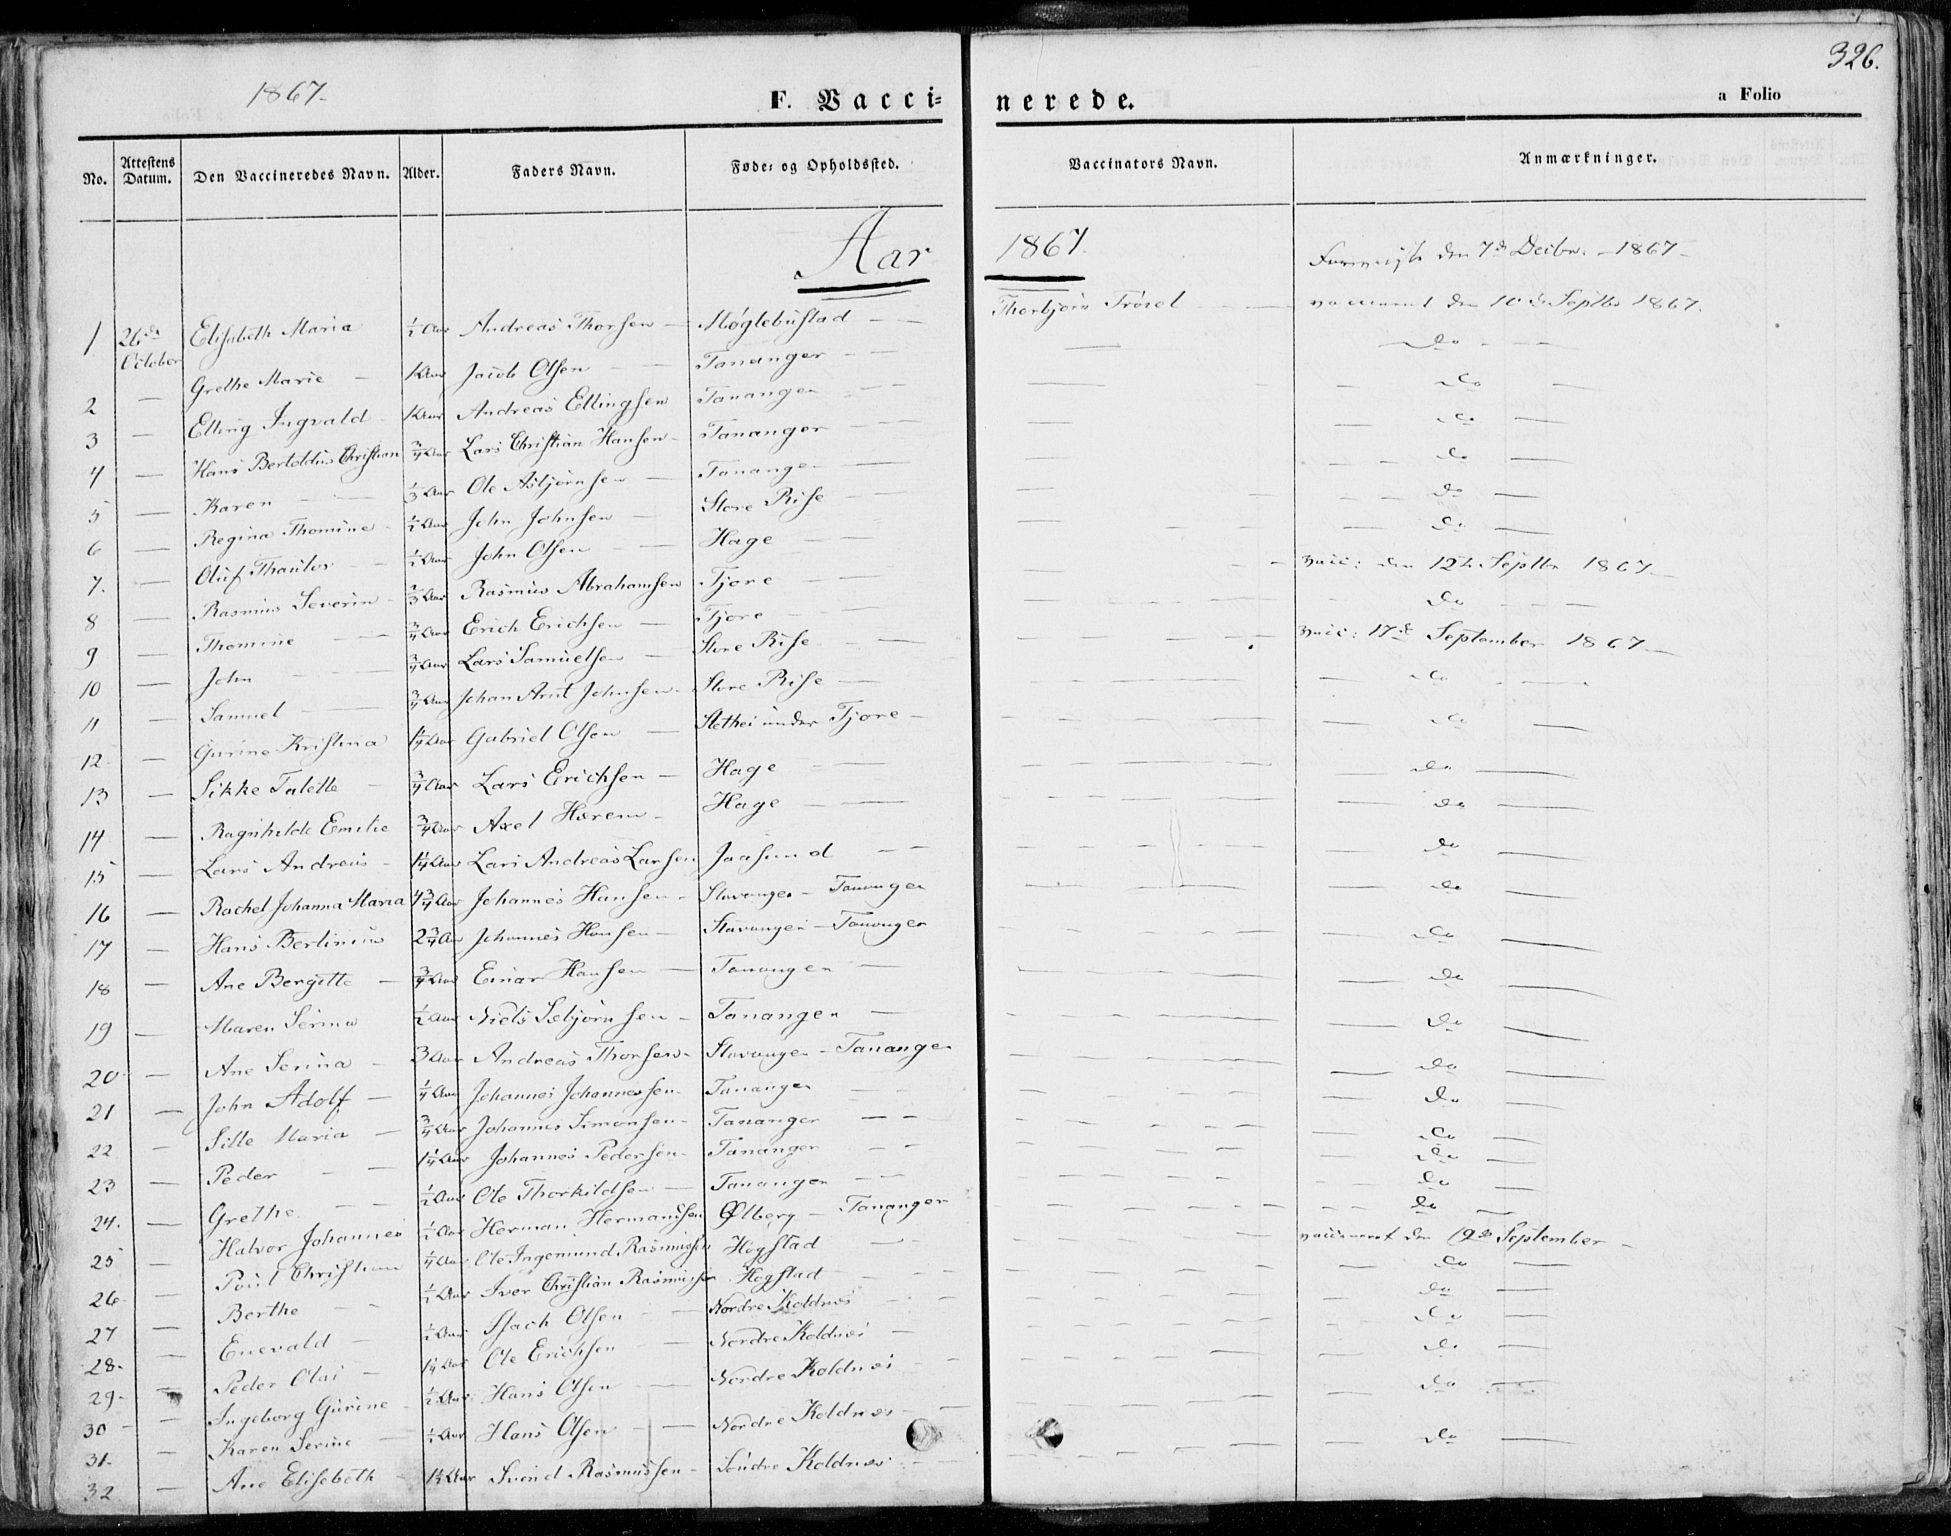 1867.
F. Vacci-
nerede.
326.
a Folio
No.
Attestens Datum.
Den Vaccineredes Navn.
Alder.
Faders Navn.
Føde- og Opholdssted.
Vaccinators Navn.
Anmærkninger.
Aar 1867.
den 7de Decbr. - 1867 -
1 26de October Elisabeth Maria 1/2 Aar Andreas Thorsen Møglebustad Thorbjørn den 10de Septbr 1867.
do
2 — Grethe Marie 1 Aar Jacob Olsen Tananger — do
3 — Elling Ingvald 1 Aar Andreas Ellingsen Tananger — do
4 — Hans Bertoldius Christian 3/4 Aar Lars Christian Hansen Tananger — do
5 — Karen 1/3 Aar Ole Asbjørnsen Tananger — do
6 — Regina Thomine 1/2 Aar John Johnsen Store Rise — do
7. — Oluf Thaulov 1/2 Aar John Olsen Hage — vacc: den 12te Septbr 1867
8 — Rasmus Severin 2/3 Aar Rasmus Abrahamsen Tjore — do
9 — Thomine 3/4 Aar Erich Erichsen Tjore — vacc: 17de September 1867.
10 — John 3/4 Aar Lars Samuelsen Store Rise — do
11 — Samuel 3/4 Aar Johan Arnt Johnsen Store Rise — do
12 — Gurine Kristina 1 1/4 Aar Gabriel Olsen Slethei under Tjore — do
13 — Sikke Talette 3/4 Aar Lars Erichsen Hage — do
14 — Ragnhilde Emilie 3/4 Aar Axel Harem Hage — do
15 — Lars Andreas 1 1/4 Aar Lars Andreas Larsen Jaasund — do
16 — Rachel Johanna Maria 4 3/4 Aar Johannes Hansen Stavanger - Tananger — do
17 — Hans Bertinius 2 3/4 Aar Johannes Hansen Stavanger - Tananger — do
18 — Ane Bergitte 3/4 Aar Einar Hansen Tananger — do
19 — Maren Serina 1/2 Aar Niels Sebjørnsen Tananger — do
20 — Ane Serina 3 Aar Andreas Thorsen Stavanger - Tananger — do
21 — John Adolf 1/4 Aar Johannes Johannessen Tananger — do
22 — Sille Maria 3/4 Aar Johannes Simonsen Tananger — do
23 — Peder 1 1/4 Aar Johannes Pedersen Tananger — do
24. — Grethe 1/2 Aar Ole Thorkildsen Tananger — do
25 — Halvor Johannes 1/2 Aar Herman Hermandsen Ølberg - Tananger — vaccineret den 19de September
26 — Poul Christian 1/4 Aar Ole Ingemund Rasmussen Hogstad — do
27 — Berthe 1/2 Aar Iver Christian Rasmussen Hogstad — do
28. — Enevald 1/2 Aar Isach Olsen Nordre Koldnes — do
29. — Peder Olai 1 1/4 Aar Ole Erichsen Nordre Koldnes — do
30 — Ingeborg Gurine 1/2 Aar Hans Olsen Nordre Koldnes — do
31. — Karen Serine 1/2 Aar Hans Olsen Nordre Koldnes — do
32 — Ane Elisabeth Svend Rasmussen Søndre Koldnes